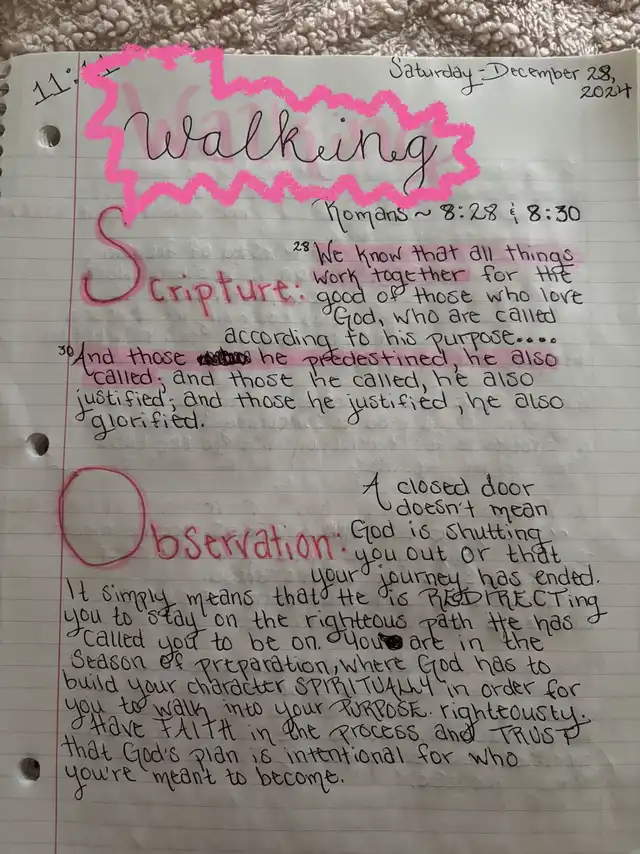 11:11
Saturday - December 28,
2024
Walking
Romans ~ 8:28 & 8:30
Scripture:
28 We know that all things
work together for the
good of those who love
God, who are called
according to his purpose....
30 And those he predestined, he also
called; and those he called, he also
justified; and those he justified, he also
glorified.
Observation:
A closed door
doesn't mean
God is shutting
you out or that
your journey has ended.
It simply means that He is REDIRECTing
you to stay on the righteous path He has
called you to be on. You are in the
Season of preparation, where God has to
build your character SPIRITUALLY in order for
you to walk into your PURPOSE. righteously.
Have FAITH in the process and TRUST
that God's plan is intentional for who
you're meant to become.